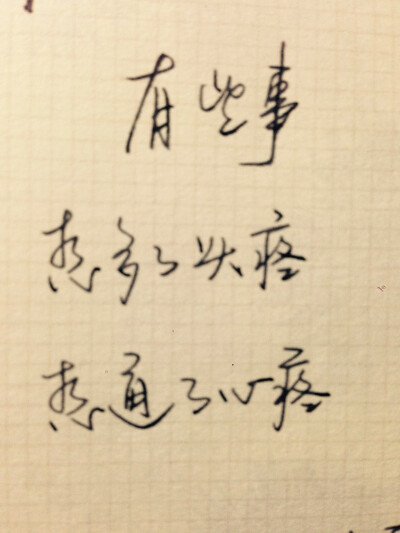 有些事
想多了头疼
想通了心疼